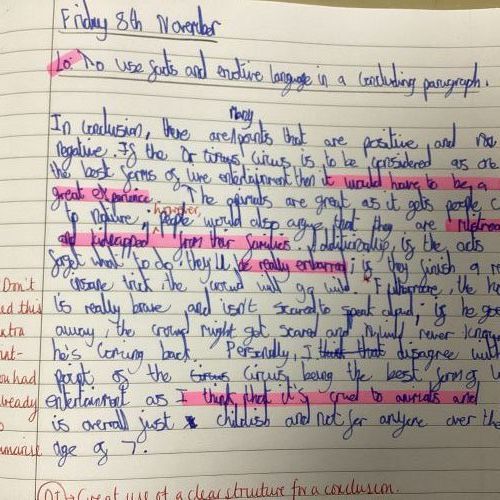 Friday 8th November
Lo: To use facts and emotive language in a concluding paragraph.
many
In conclusion, there are points that are positive and
negative. If the circus is to be considered as one
the best forms of live entertainment then it would have to be a
great experience. The animals are great as it gets people
to nature. however, People would also argue that they are
and kidnapped from their families. Additionally, if the acts
forget what to do they'll be really embarrassed; if they finish a
insane trick the crowd will go wild. Furthermore, the
is really brave and isn't scared to speak aloud, if he goes
away, the crowd might get scared and never know
he's coming back. Personally, I disagree with
point of the circus being the best form of
entertainment as I think that it's cruel to animals and
is overall just childish and not for anyone over the
age of 7.
Don't
this
already
Great use of a clear structure for a conclusion.